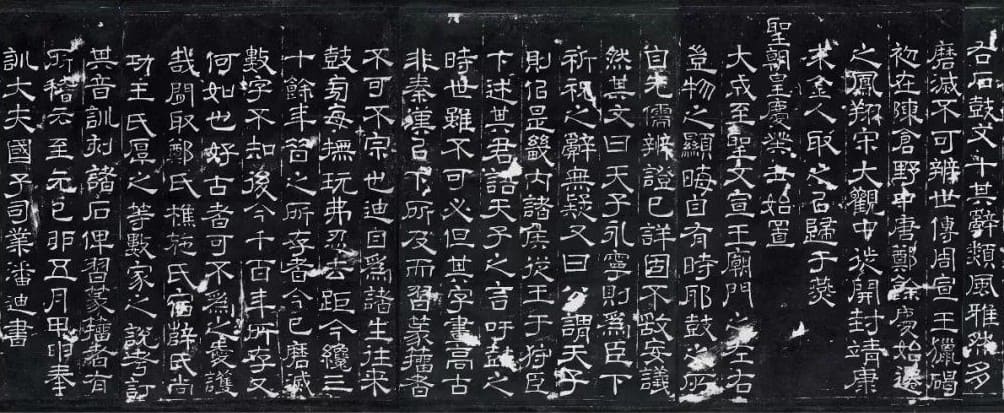 右石鼓文十其辭類風雅然多
磨滅不可辨世傳周宣王獵碣
初在陳倉野中唐鄭餘慶始遷
之鳳翔宋大觀中徙開封靖康
末金人取之以歸于燕
聖朝皇慶癸丑始置
大成至聖文宣王廟門之左右
豈物之顯晦自有時耶鼓之所
自先儒辨證已詳固不敢妄議
然其文曰天子永寧則爲臣下
祈祝之辭無疑又曰公謂天子
則侣是畿内諸侯從王于狩臣
下述其君語天子之言吁鼓之
時世雖不可必但其字畫高古
非秦漢已下所及而習篆籀者
不可不宗也迪自爲諸生往來
鼓旁每撫玩弗忍去距今纔三
十餘年昔之所存者今已磨滅
數字不知後今千百年所存又
何如也好古者可不爲之愛護
哉間取鄭氏樵施氏宿薛氏尚
功王氏厚之等數家之說考訂
其音訓刻諸石俾習篆籀者有
所稽云至元己卯五月甲申奉
訓大夫國子司業潘迪書